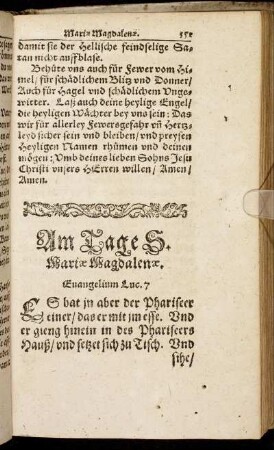 Mariæ Magdalenæ.
damit sie der Hellische feindselige Sa-
tan nicht auffblase.
Behüte vns auch für Fewer vom Hi-
mel/ für schädlichem Blitz vnd Donner/
Auch für Hagel vnd schädlichem Vnge-
witter. Laß auch deine heylige Engel/
die heyligen Wächter bey vns sein: Das
wir für allerley Fewersgefahr vñ Hertz-
leyd sicher sein vnd bleiben/ vnd preysen
Heyligen Namen rhümen vnd deinen
mögen: Vmb deines lieben Sohns Jesu
Christi vnsers HErren willen/ Amen/
Amen.
Am Tage S.
Mariæ Magdalenæ.
Euangelium Luc. 7
ES bat jn aber der Phariseer
einer/ das er mit jm esse. Vnd
er gieng hinein in des Phariseers
Hauß/ vnd setzet sich zu Tisch. Vnd
sihe/